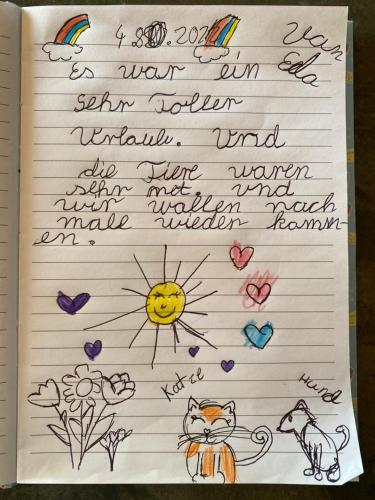 Van
Eda
Es war ein
sehr Toller
Urlaub. Und
die Tiere waren
sehr net. und
wir wollen noch
malle wieder komm-
en.
Katze
Hund